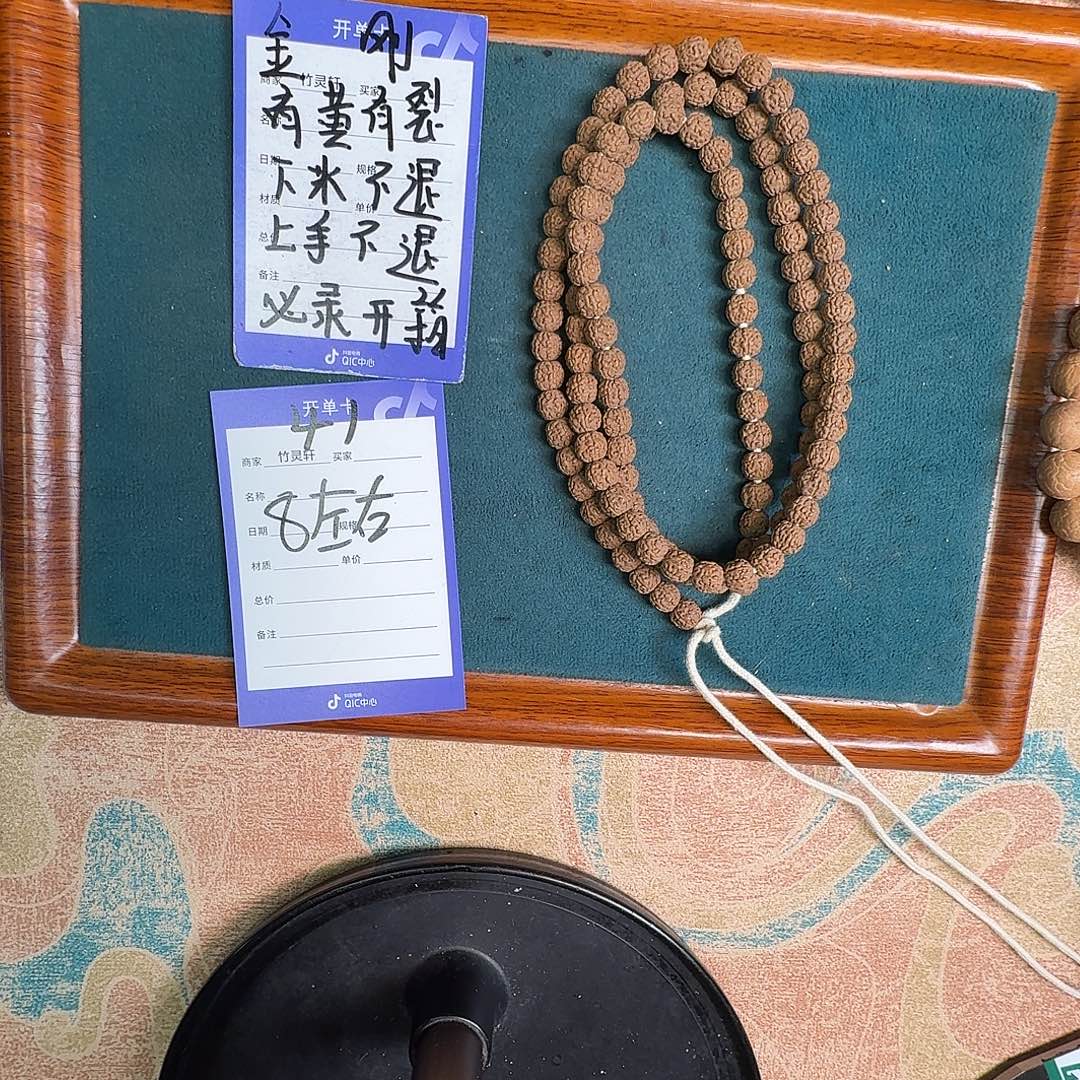 开单卡
金刚
商家 竹灵轩 买家
有黄有裂
名称
日期 规格
下水不退
材质 单价
上手不退
总价
备注
必录开箱
抖音电商
QIC中心
开单卡
41
商家 竹灵轩 买家
名称
8左右
日期 规格
材质 单价
总价
备注
抖音电商
QIC中心